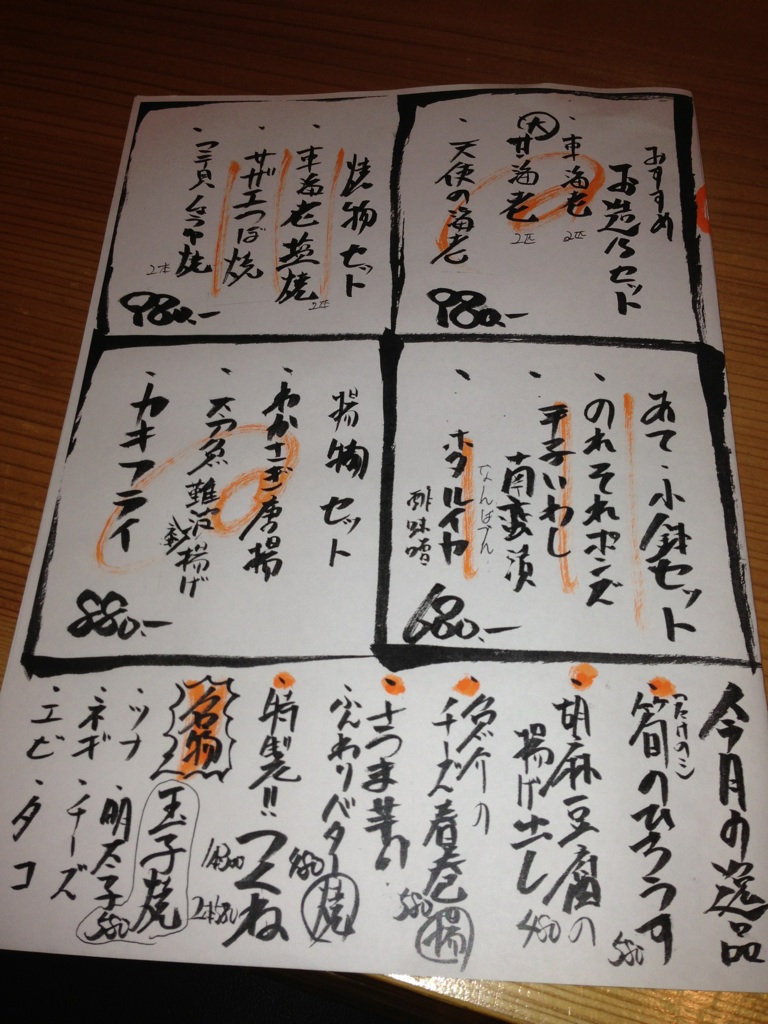 おすすめ
お造りセット
・車海老 2匹
・大甘海老 2匹
・天使の海老
980.-
焼物セット
・車海老塩焼 2匹
・サザエつぼ焼
・マテ貝バター焼 2本
980.-
あて・小鉢セット
・のれそれポンズ
・平子いわし
南蛮漬
なんばん
・ホタルイカ
酢味噌
680.-
揚物セット
・わかさぎ唐揚
・太刀魚難波揚げ
・カキフライ
880.-
今月の逸品
(たけのこ)
・筍のひろうす 580
・胡麻豆腐の
揚げ出し 480
・魚介の
チーズ春巻 揚 580
・さつま芋の
ふんわりバター焼
・特製!!つくね
2本580
名物
玉子焼 580
・ツナ・明太子
・ネギ・チーズ
・エビ・タコ